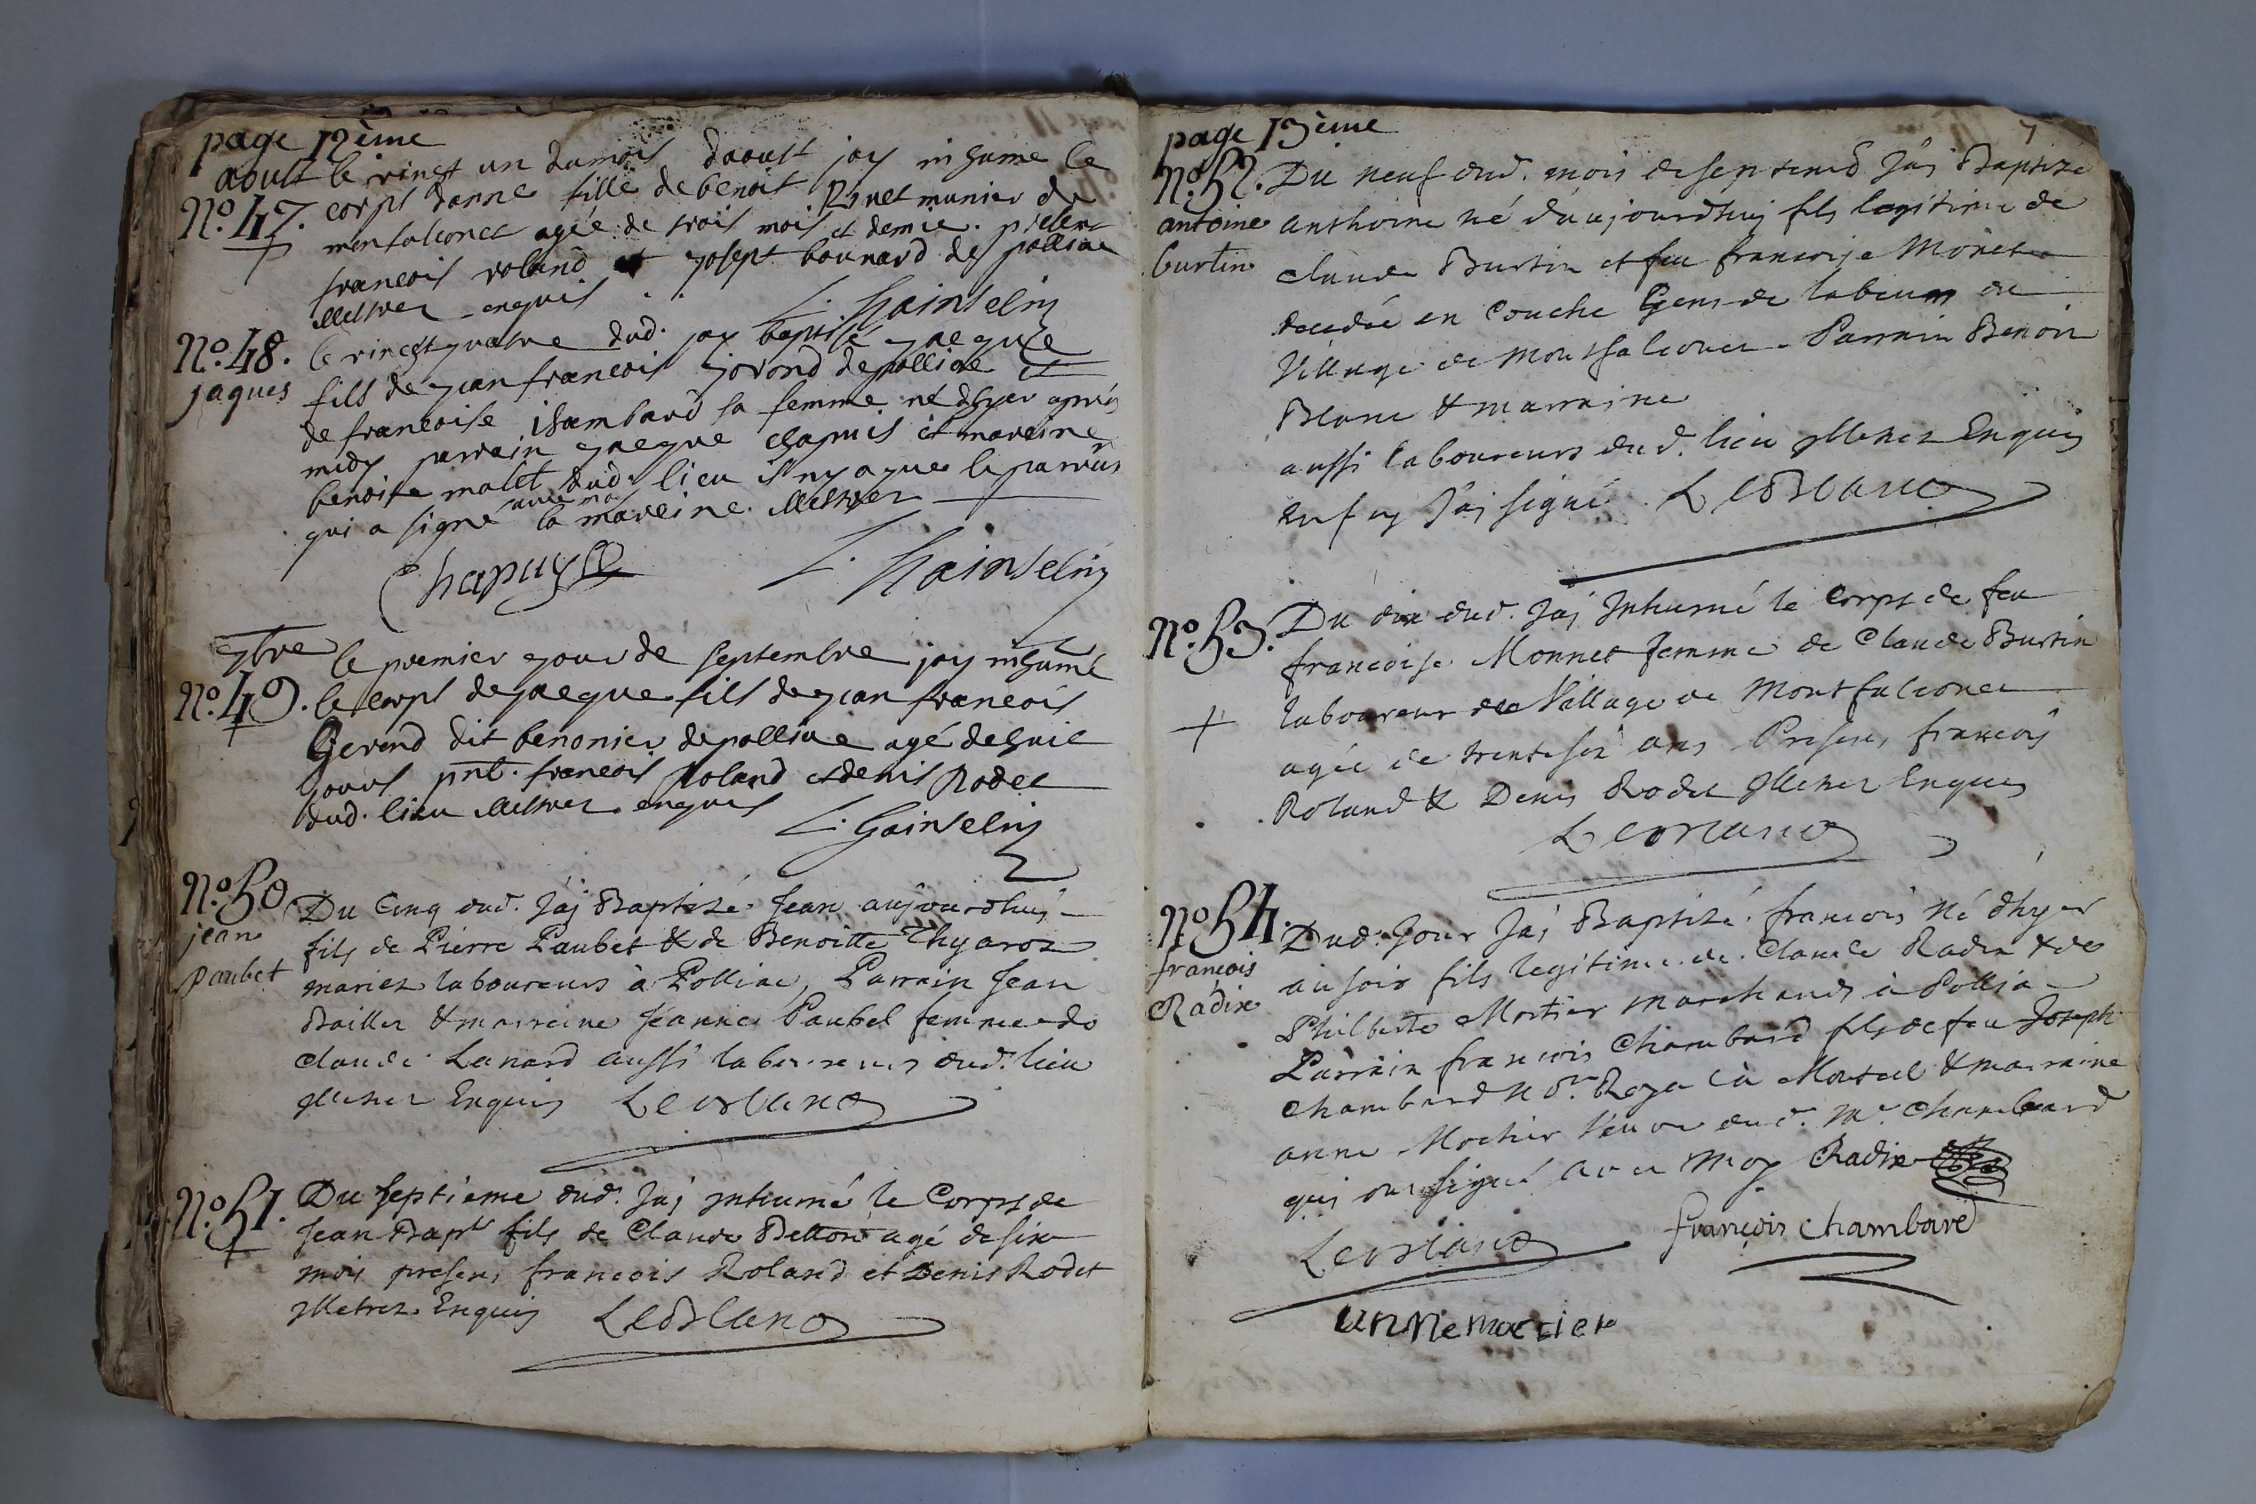 page 12ème
aoust le vinct un dumois daoust jay inhumé le
No. 47. corps danne fille de benoit Ranet munier de
montfalconet agée de trois mois et demie. present
francois roland et joseph bounard de polliae
illetrez enquis L. hainselin
No. 48. le vinct quatre dud. jay baptisé jacque
jaques fils de jean francois jorond de polliae et
de francoise isambard sa femme né dhyer apres
midy parrain jacque chapuis et mareine
benoite malet dud. lieu il ny a que le parrain
qui a signé avec moy la mareine illetrez
Chapuys L. hainselin
7bre le premier jour de septembre jay inhumé
No. 49. le corps de jacque fils de jean francois
Gerond dit benonier de polliae agé de huit
jours pnt. francois Roland et denis Rodet
dud. lieu illetrez enquis L. hainselin
No. 50. Du Cinq dud. J'ai Baptizé Jean aujourdhuy
jean fils de Pierre Paubet & de Benoitte Thyaroz
paubet mariez laboureurs à Polliac, Parrain Jean
Baillet & marreine Jeanne Paubet femme de
Claude Lanard aussi laboureurs dud. lieu
illetrez Enquis LeBlanc
No. 51. Du septieme dud. J'ai inhumé le Corps de
Jean Bapt fils de Claude Betton agé de six
mois presens francois Roland et Denis Rodet
illetrez Enquis LeBlanc
page 13ème 7
No. 52. Du neuf dud. mois de septemb J'ai Baptizé
antoine anthoine né d'aujourdhuy fils legitime de
burtin claude Burtin et feu francoise Monet
decedée en Couche Gens de labeur du
Village de Montfalconet Parrain Benoit
Blanc & marraine
aussi laboureurs dud. lieu illetrez Enquis
enfoy J'ai signé. LeBlanc
No. 53. Du dix dud. J'ai Inhumé le Corps de feu
francoise Monnet femme de Claude Burtin
laboureur du Village de Montfalconet
agée de trente six ans Presens francois
Roland & Denis Rodet illetrez Enquis
LeBlanc
No 54. Dud. Jour J'ai Baptizé francois né d'hyer
françois au soir fils legitime de Claude Radix & de
Radix Philberte Mortier marchands à Pollia
Parrain francois Chambard fils de feu Joseph
Chambard No.re Royal à Montcel & marraine
anne Mortier Veuve dud. Mr. Chambard
qui ont signé avec moy Radix
LeBlanc françois chambard
anne mortier